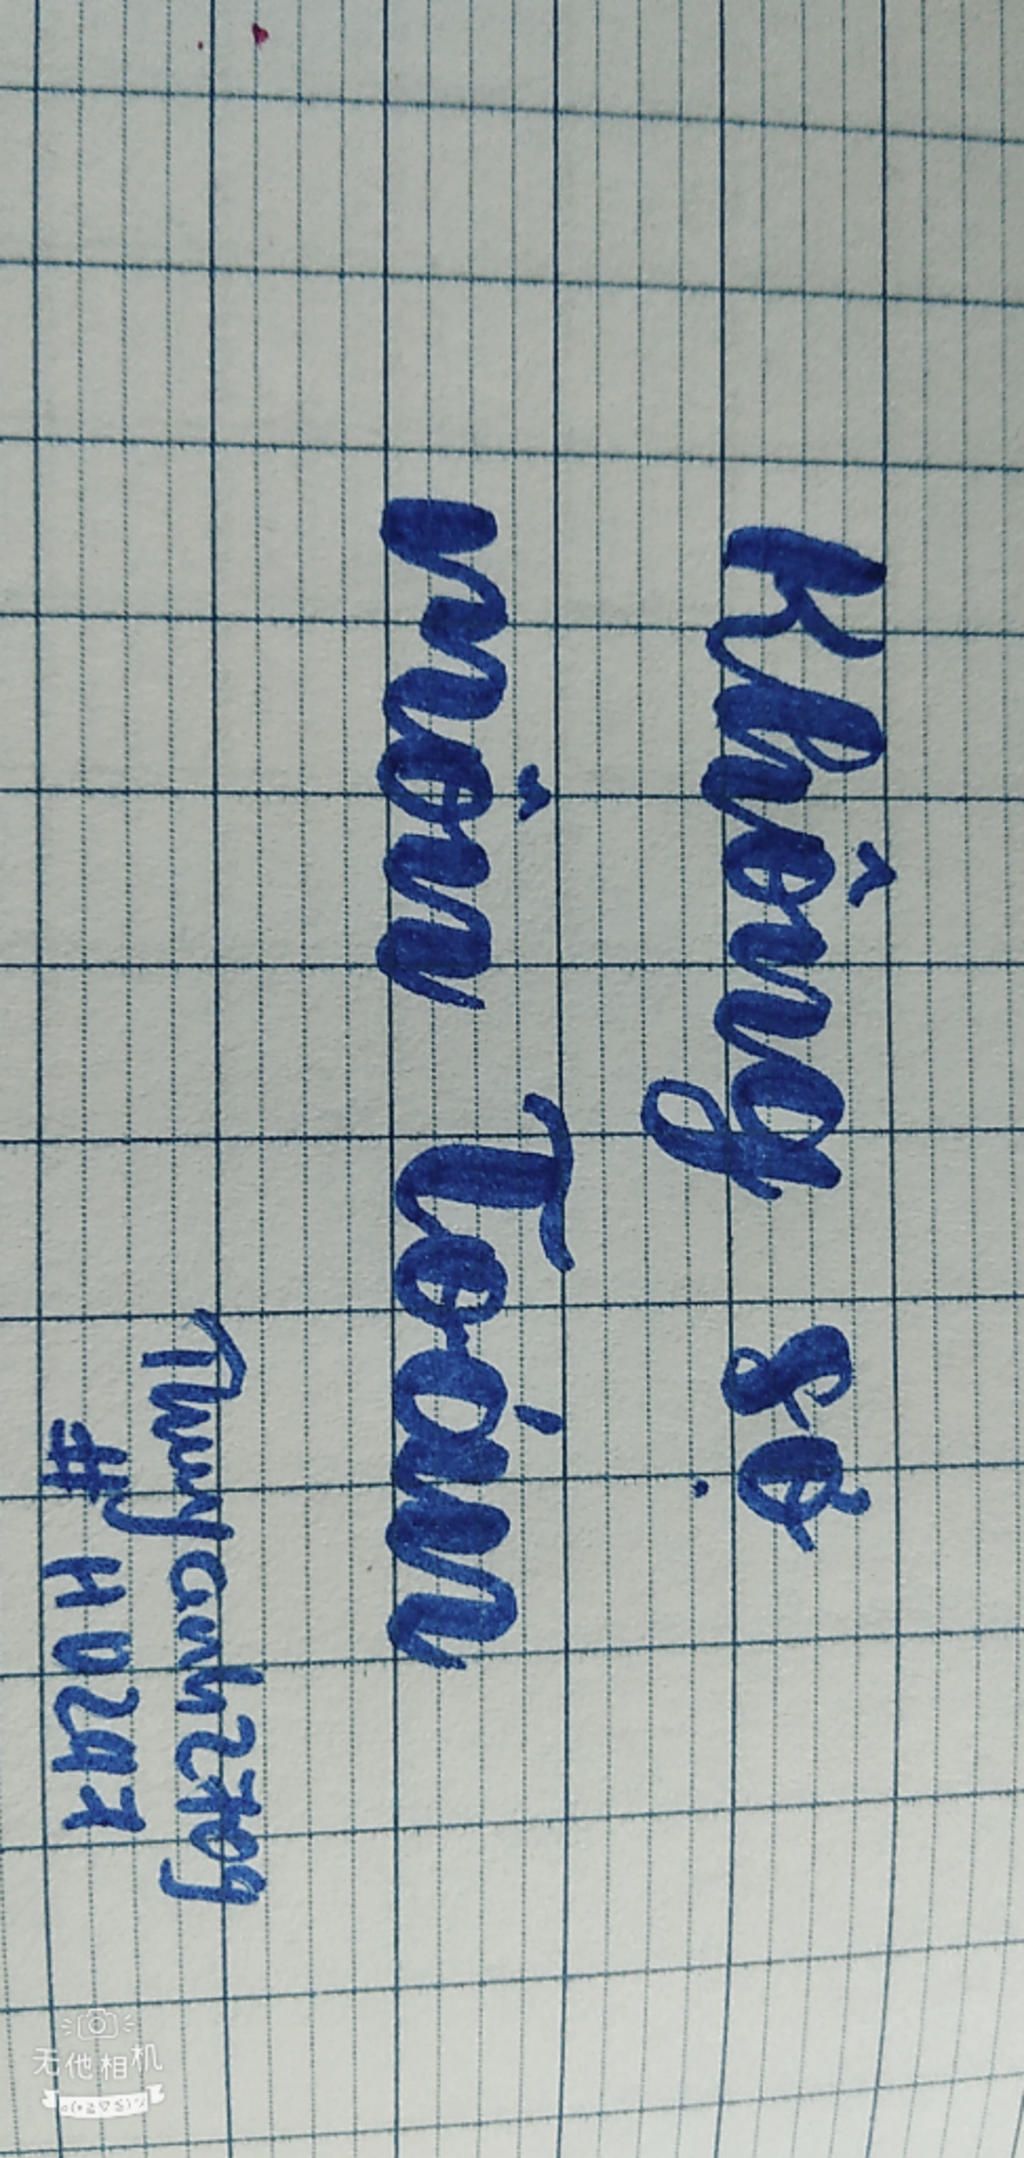 Không sợ
môn Toán
Thuyanh2709
# H0297
无他相机